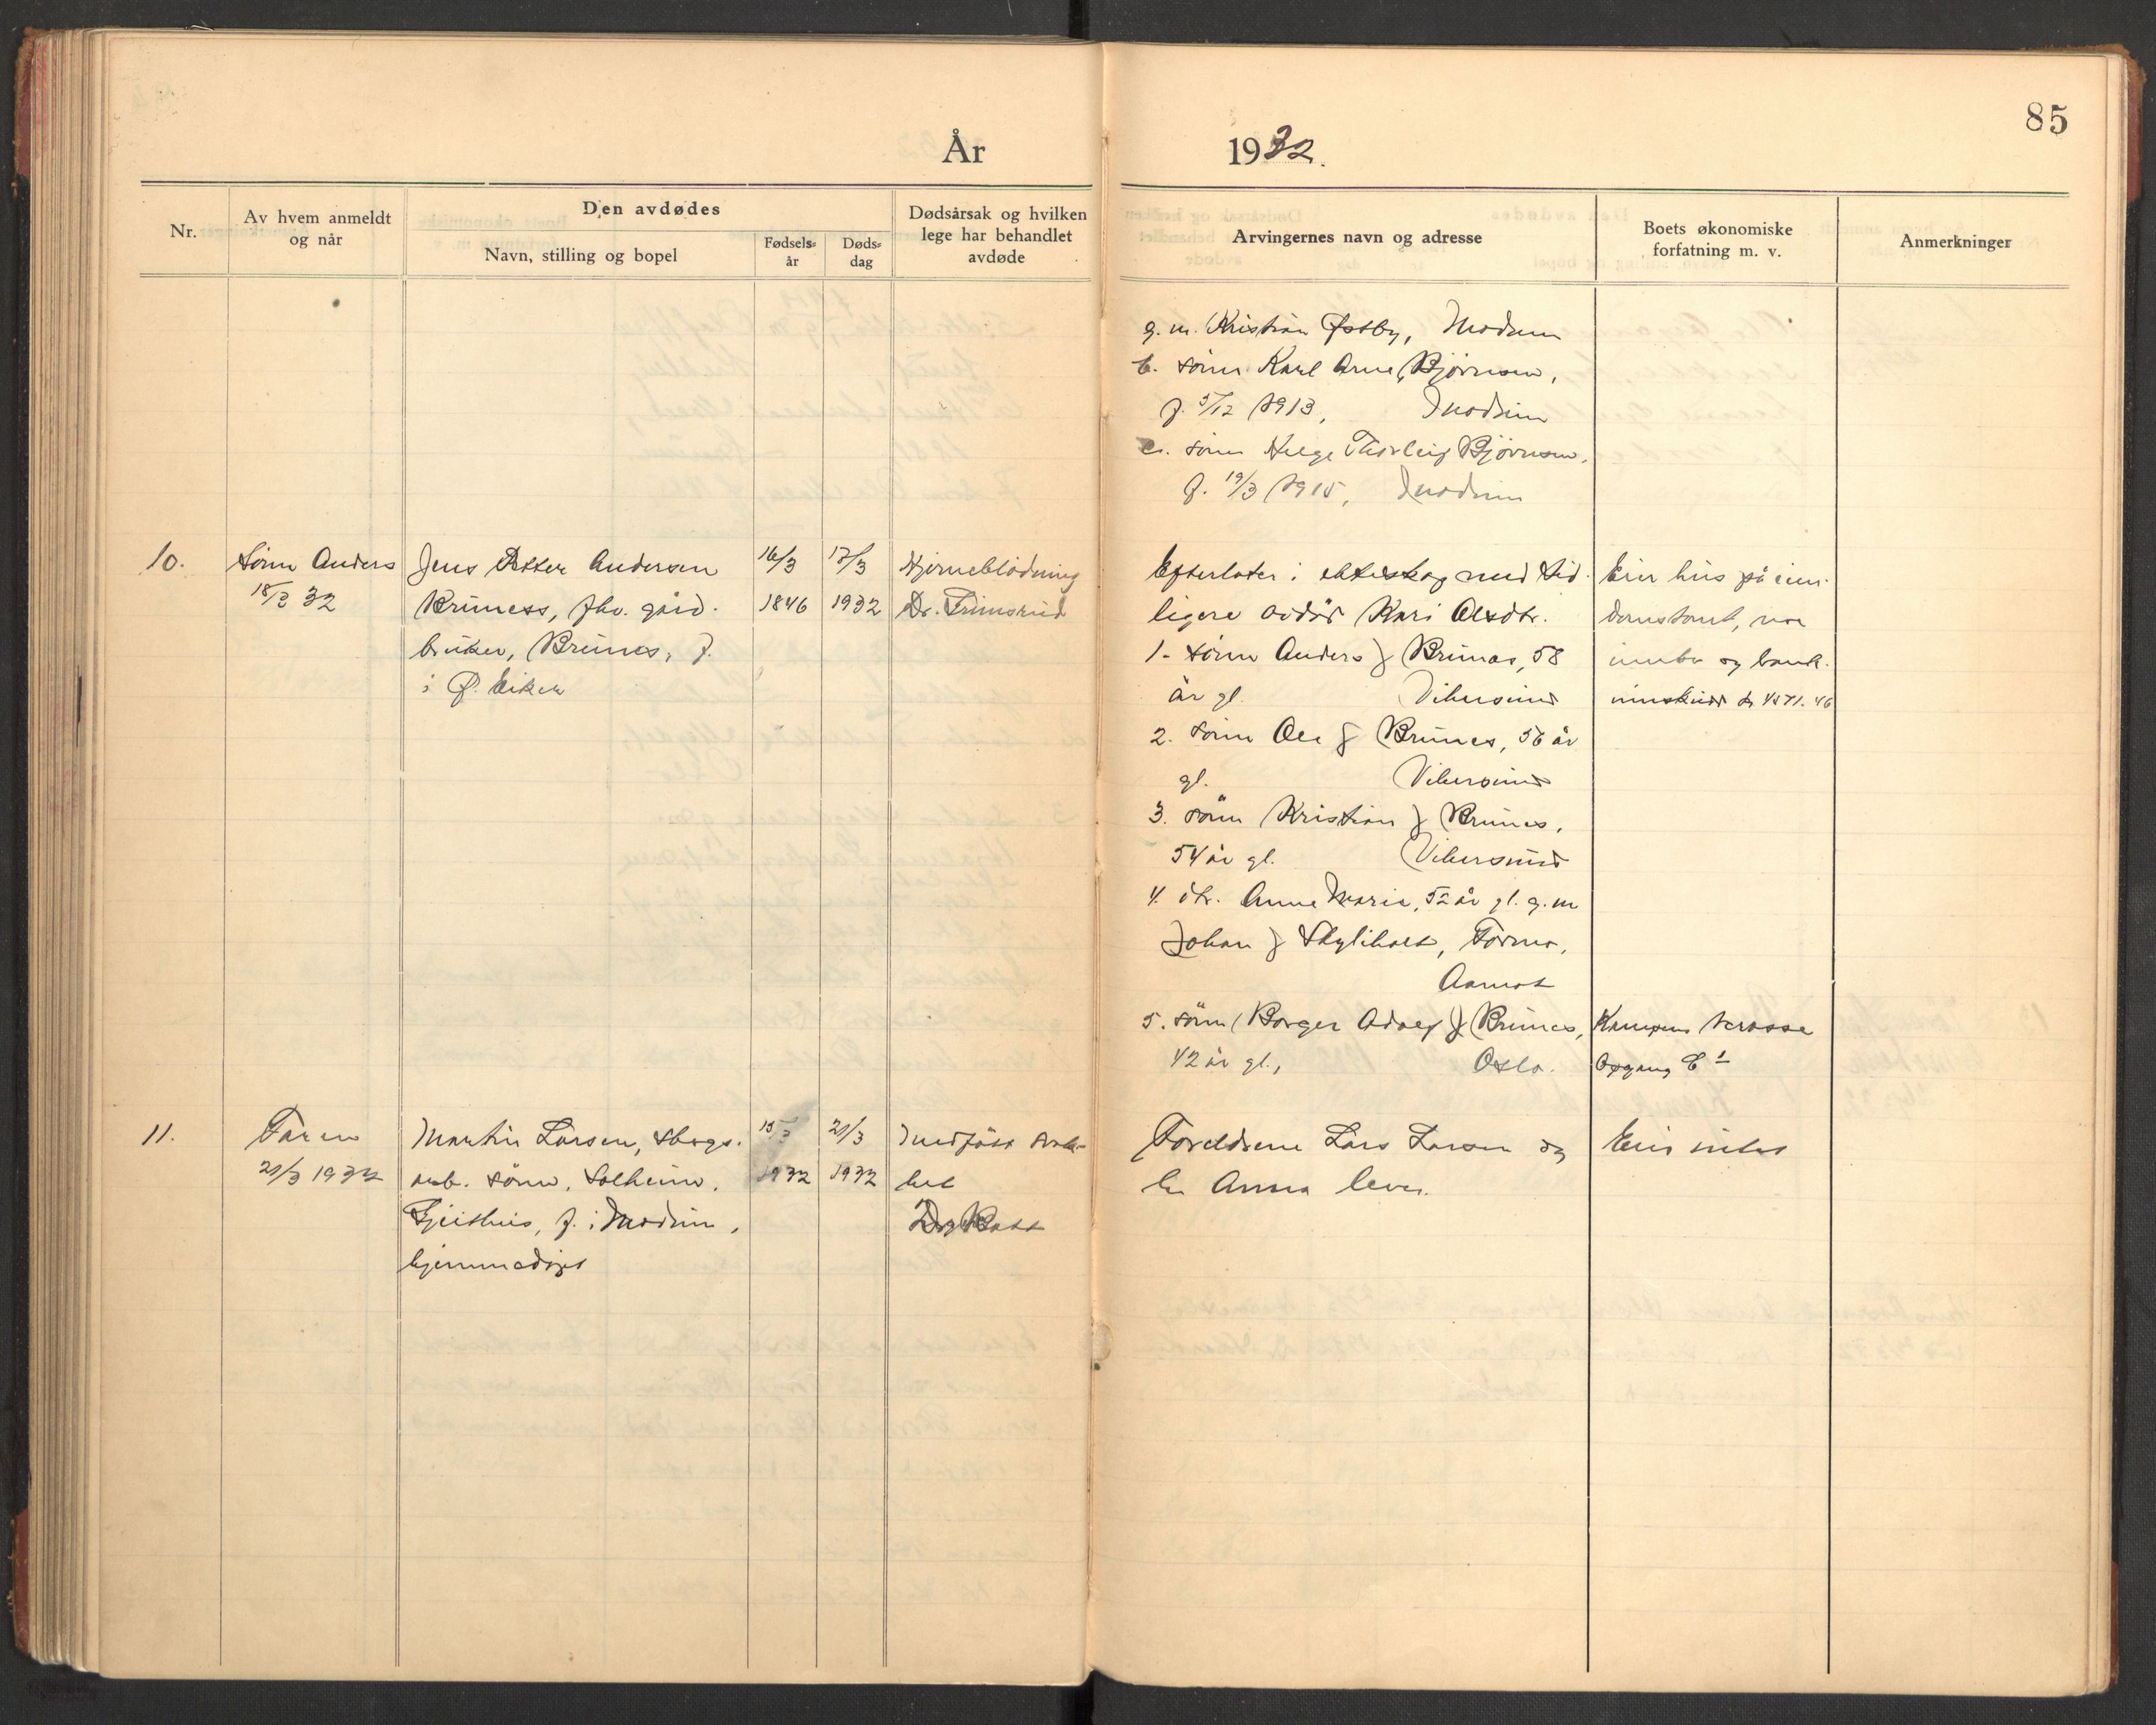 85
År 1932.
Nr.
Av hvem anmeldt
og når
Den avdødes
Navn, stilling og bopel
Fødsels-
år
Døds-
dag
Dødsårsak og hvilken
lege har behandlet
avdøde
Arvingernes navn og adresse
Boets økonomiske
forfatning m. v.
Anmerkninger
g. m. Kristian Østby, Modum
b. sønn Karl Arne Bjørnsen,
f. 5/12 1913, Modum
c. sønn Helge Thorleif Bjørnsen,
f. 19/3 1915, Modum
10.
Sønn Anders
18/3 32
Jens Petter Andersen
Bruness, fhv. gård-
bruker, Brunes, f.
i Ø. Eiker
16/3
1846
17/3
1932
Hjerneblødning
Dr. Frimsrud
Efterlater i ekteskap med tid-
ligere avdød Kari Olsdtr.
1. sønn Anders J Brunes, 58
år gl. Vikersund
2. sønn Ole J Brunes, 56 år
gl. Vikersund
3. sønn Kristian J Brunes,
54 år gl. Vikersund
4. dtr. Anne Marie, 52 år gl. g. m
Johan J Skylihalt,
Aamot
5. sønn Borger Adolf J Brunes,
42 år gl., Oslo.
Eier hus på eien-
domstomt, noe
innbo og bank-
innskudd kr 4571.46
Kampens terasse
Opgang E 1
11.
Faren
21/3 1932
Martin Larsen, skogs-
arb. sønn, Solheim,
Gjeithus, f. i Modum,
hjemmedøpt
15/3
1932
21/3
1932
Medfødt svak-
het
Dr Bast
Foreldrene Lars Larsen og
hu Anna lever.
Eier intet